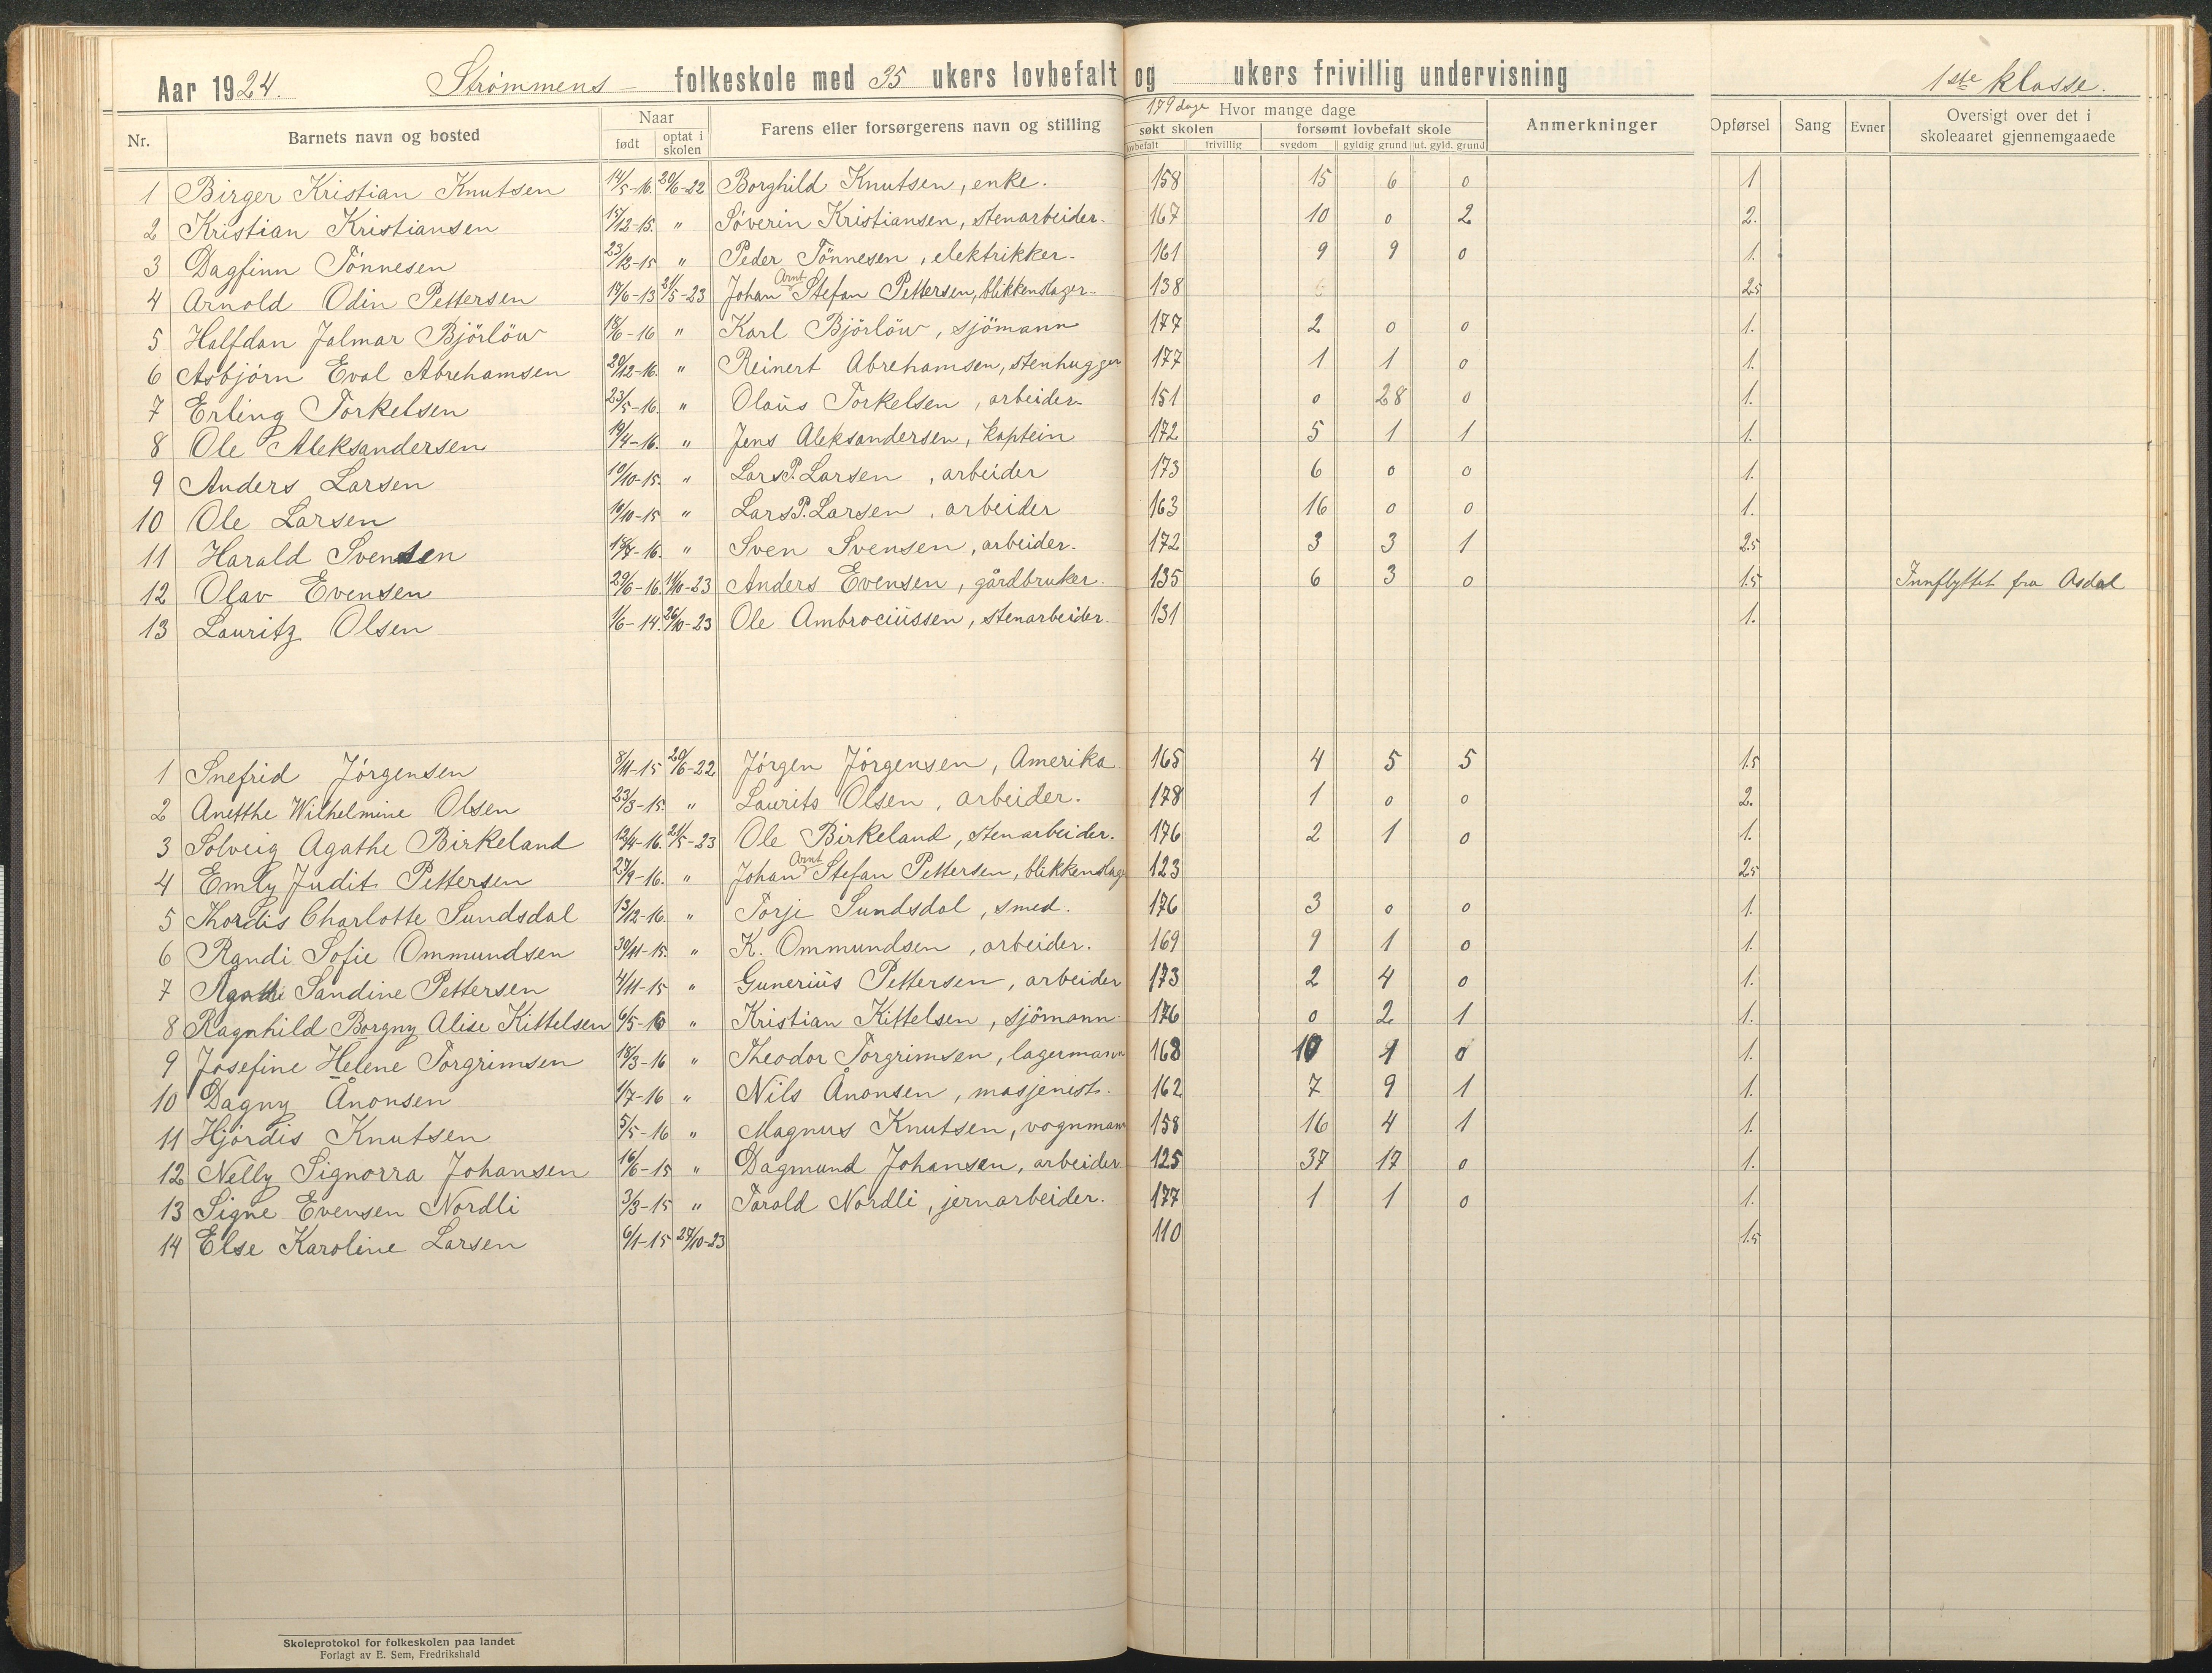 Aar 1924. Strømmens folkeskole med 35 ukers lovbefalt og ukers frivillig undervisning 1ste klasse.
Nr. Barnets navn og bosted Naar født optat i skolen Farens eller forsørgerens navn og stilling 179 dage Hvor mange dage søkt skolen lovbefalt frivillig forsømt lovbefalt skole sygdom gyldig grund ut. gyld. grund Anmerkninger Opførsel Sang Evner Oversigt over det i skoleaaret gjennemgaaede
1 Birger Kristian Knutsen 14/5-16. 20/6-22 Borghild Knutsen, enke. 158 15 6 0 1
2 Kristian Kristiansen 15/12-15. " Søverin Kristiansen, stenarbeider. 167 10 0 2 2.
3 Dagfinn Tönnesen 23/12-15 " Peder Tönnesen, elektrikker. 161 9 9 0 1.
4 Arnold Odin Pettersen 17/6-13 21/5-23 Johan Arnt Stefan Pettersen, blikkenslager. 138 2.5
5 Halfdan Jalmar Björlöw 18/6-16 " Karl Björlöw, sjömann 177 2 0 0 1.
6 Asbjörn Eval Abrehamsen 20/12-16. " Reinert Abrehamsen, stenhugger 177 1 1 0 1.
7 Erling Torkelsen 23/5-16. " Olaüs Torkelsen, arbeider 151 0 28 0 1.
8 Ole Aleksandersen 19/4-16. " Jens Aleksandersen, kaptein 172 5 1 1 1.
9 Anders Larsen 10/10-15. " Lars P. Larsen, arbeider 173 6 0 0 1.
10 Ole Larsen 10/10-15 " Lars P. Larsen, arbeider 163 16 0 0 1.
11 Harald Svensen 18/7-16. " Sven Svensen, arbeider. 172 3 3 1 2.5
12 Olav Evensen 29/6-16. 11/10-23 Anders Evensen, gårdbruker. 135 6 3 0 1.5 Innflyttet fra Asdal
13 Lauritz Olsen 1/6-14. 26/10-23 Ole Ambrociüssen, stenarbeider. 131 1.
1 Snefrid Jörgensen 8/11-15 20/6-22 Jörgen Jörgensen, Amerika 165 4 5 5 1.5
2 Anetthe Wilhelmine Olsen 23/3-15. " Laurits Olsen, arbeider. 178 1 0 0 2.
3 Solveig Agathe Birkeland 12/4-16. 21/5-23 Ole Birkeland, stenarbeider. 176 2 1 0 1.
4 Emly Judit Pettersen 27/9-16. " Johan Arnt Stefan Pettersen, blikkenslag 123 2.5
5 Thordis Charlotte Sundsdal 13/12-16. " Torje Sundsdal, smed. 176 3 0 0 1.
6 Randi Sofie Ommundsen 30/11-15. " K. Ommundsen, arbeider. 169 9 1 0 1.
7 Agathe Sandine Pettersen 4/11-15 " Gunerius Pettersen, arbeider 173 2 4 0 1.
8 Ragnhild Borgny Alise Kittelsen 6/5-16 " Kristian Kittelsen, sjömann. 176 0 2 1 1.
9 Josefine Helene Torgrimsen 18/3-16 " Theodor Torgrimsen, lagermann 168 10 1 0 1.
10 Dagny Ånonsen 1/7-16 " Nils Ånonsen, masjenist. 162 7 9 1 1.
11 Hjördis Knutsen 5/5-16 " Magnus Knutsen, vognmann 158 16 4 1 1.
12 Nelly Signorra Johansen 16/6-15 " Dagmund Johansen, arbeider 125 37 17 0 1.
13 Signe Evensen Nordli 3/3-15 " Torold Nordli, jernarbeider. 177 1 1 0 1.
14 Else Karoline Larsen 6/1-15 27/10-23 110 1.5
Skoleprotokol for folkeskolen paa landet
Forlagt av E. Sem, Fredrikshald